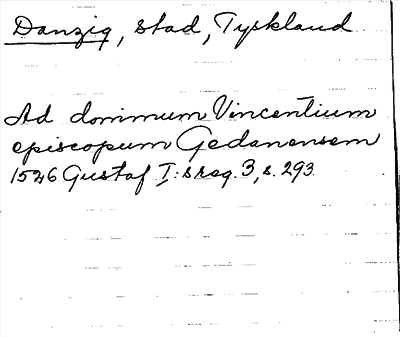 Danzig, stad, Tyskland
Ad dominum Vincentium
episcopum Gedanensem
1526 Gustaf I:s reg. 3, s. 293